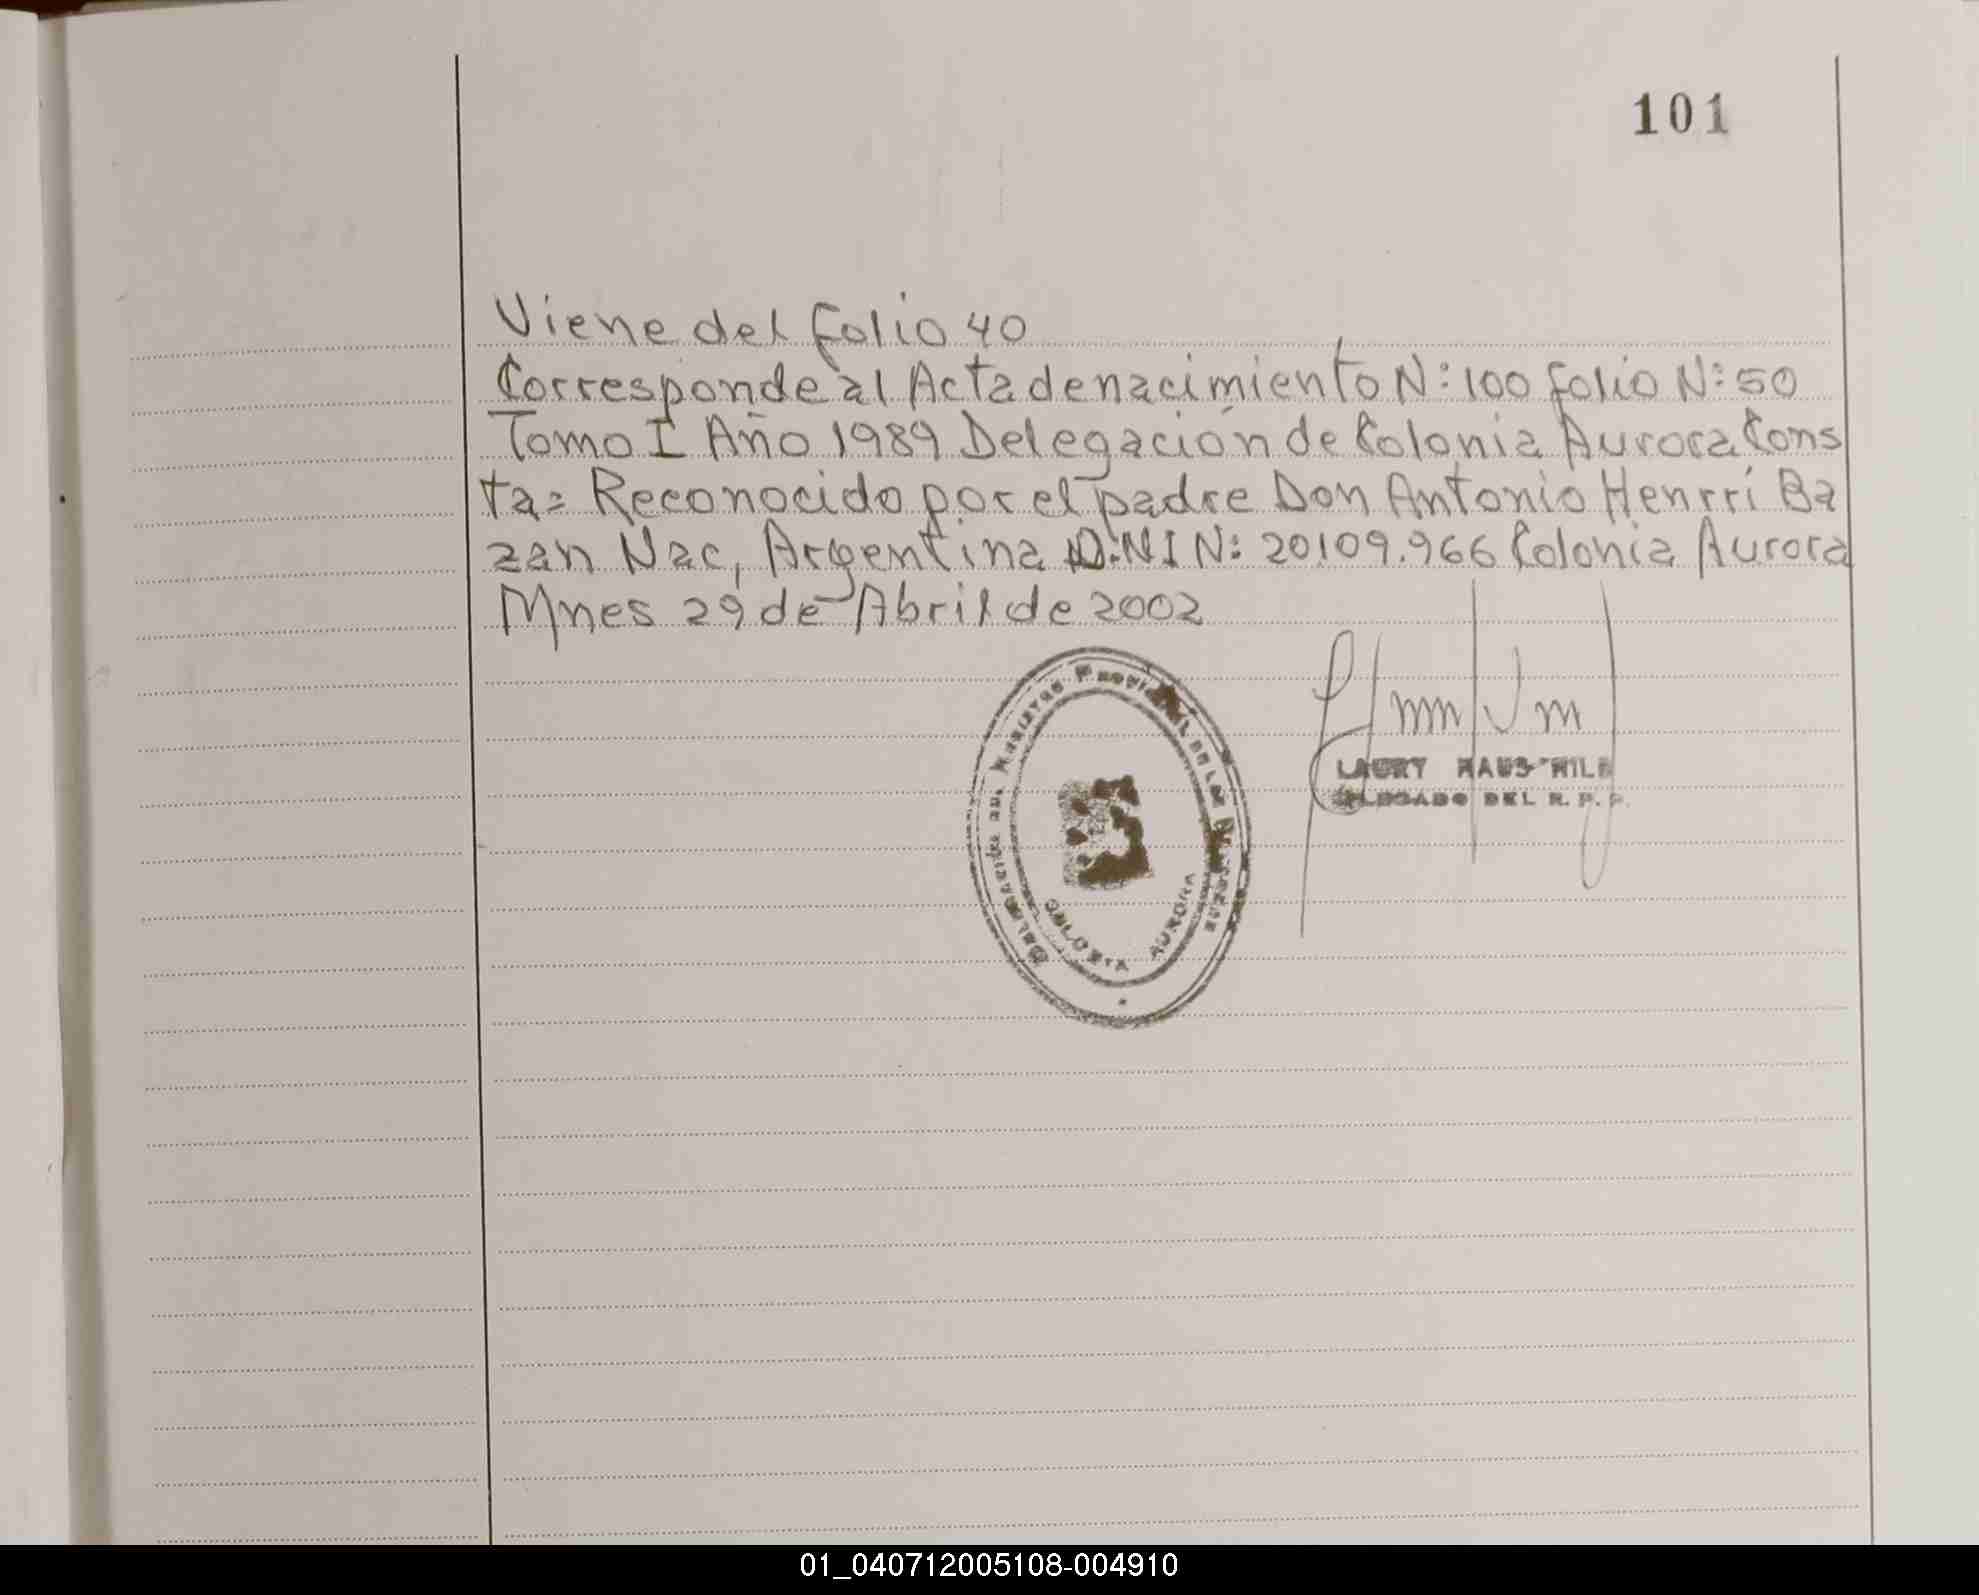 101
Viene del folio 40
Corresponde al Acta de nacimiento N: 100 folio N: 50
Tomo I Año 1989 Delegación de Colonia Aurora Cons
ta= Reconocido por el padre Don Antonio Henrri Ba
zan Nac, Argentina D.NI N: 20.109.966 Colonia Aurora
Mnes 29 de Abril de 2002
LAURY
DELEGADO DEL R. P. P.
COLONIA AURORA
01_040712005108-004910